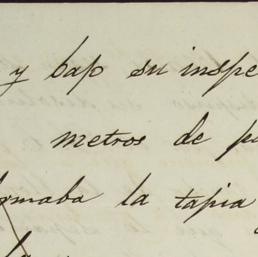 y bajo su inspe
metros de p
ormaba la tapia